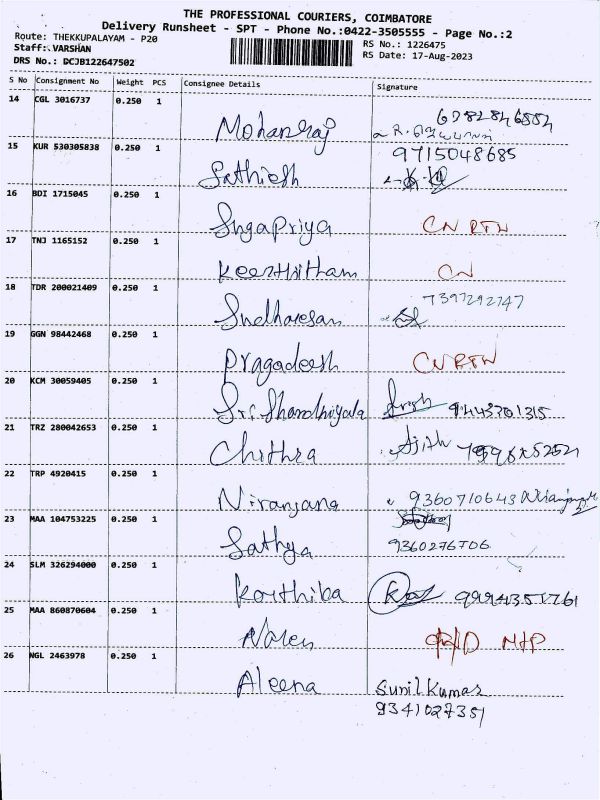 THE PROFESSIONAL COURIERS, COIMBATORE
Delivery Runsheet - SPT - Phone No.:0422-3505555 - Page No.:2
Route: THEKKUPALAYAM - P20
RS No.: 1226475
Staff:.VARSHAN
RS Date: 17-Aug-2023
DRS No.: DCJB122647502
S No Consignment No Weight PCS Consignee Details Signature
14 CGL 3016737 0.250 1 Mohanraj 6782846884
15 KUR 530305838 0.250 1 Sathiesh 9715048685
16 BDI 1715045 0.250 1 Sugapriya CN RTN
17 TNJ 1165152 0.250 1 Keerthitham CN
18 TDR 200021409 0.250 1 Sudharesan 7397292747
19 GGN 98442468 0.250 1 Pragadeesh CN RTN
20 KCM 30059405 0.250 1 Sri Shandhiyala 9443701315
21 TRZ 280042653 0.250 1 Chithra Ajith
22 TRP 4920415 0.250 1 Niranjana 9360710643 Niranjana
23 MAA 104753225 0.250 1 Sathya
9360276706
24 SLM 326294000 0.250 1 Karthika
25 MAA 860870604 0.250 1 Naren
26 NGL 2463978 0.250 1 Aleena Sunil Kumar
9341027351